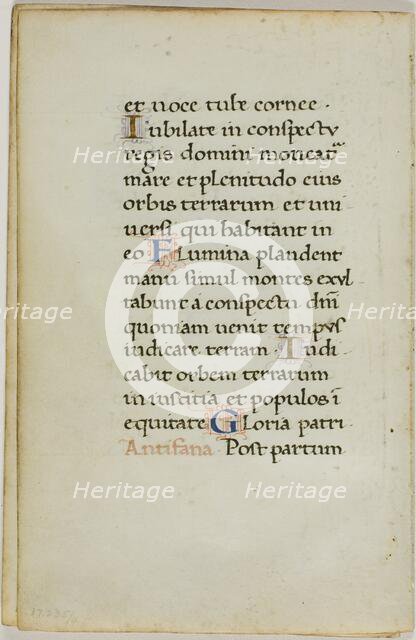 et uoce tube cornee ·
Iubilate in conspectu
regis domini moueat͂
mare et plenitudo eius
orbis terrarum et uni
uersi qui habitant in
eo Flumina plaudent
manu simul montes exul
tabunt a conspectu dn̄i
quoniam uenit tempus
iudicare terram · Iudi
cabit orbem terrarum
in iustitia et populos ī
equitate Gloria patri ·
Antifana Post partum
Heritage Heritage Heritage
Heritage Heritage Heritage
Heritage Heritage Heritage